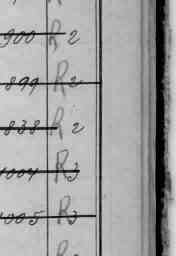 900 R 2
899 R 2
838 R 2
1004 R3
1005 R3
R